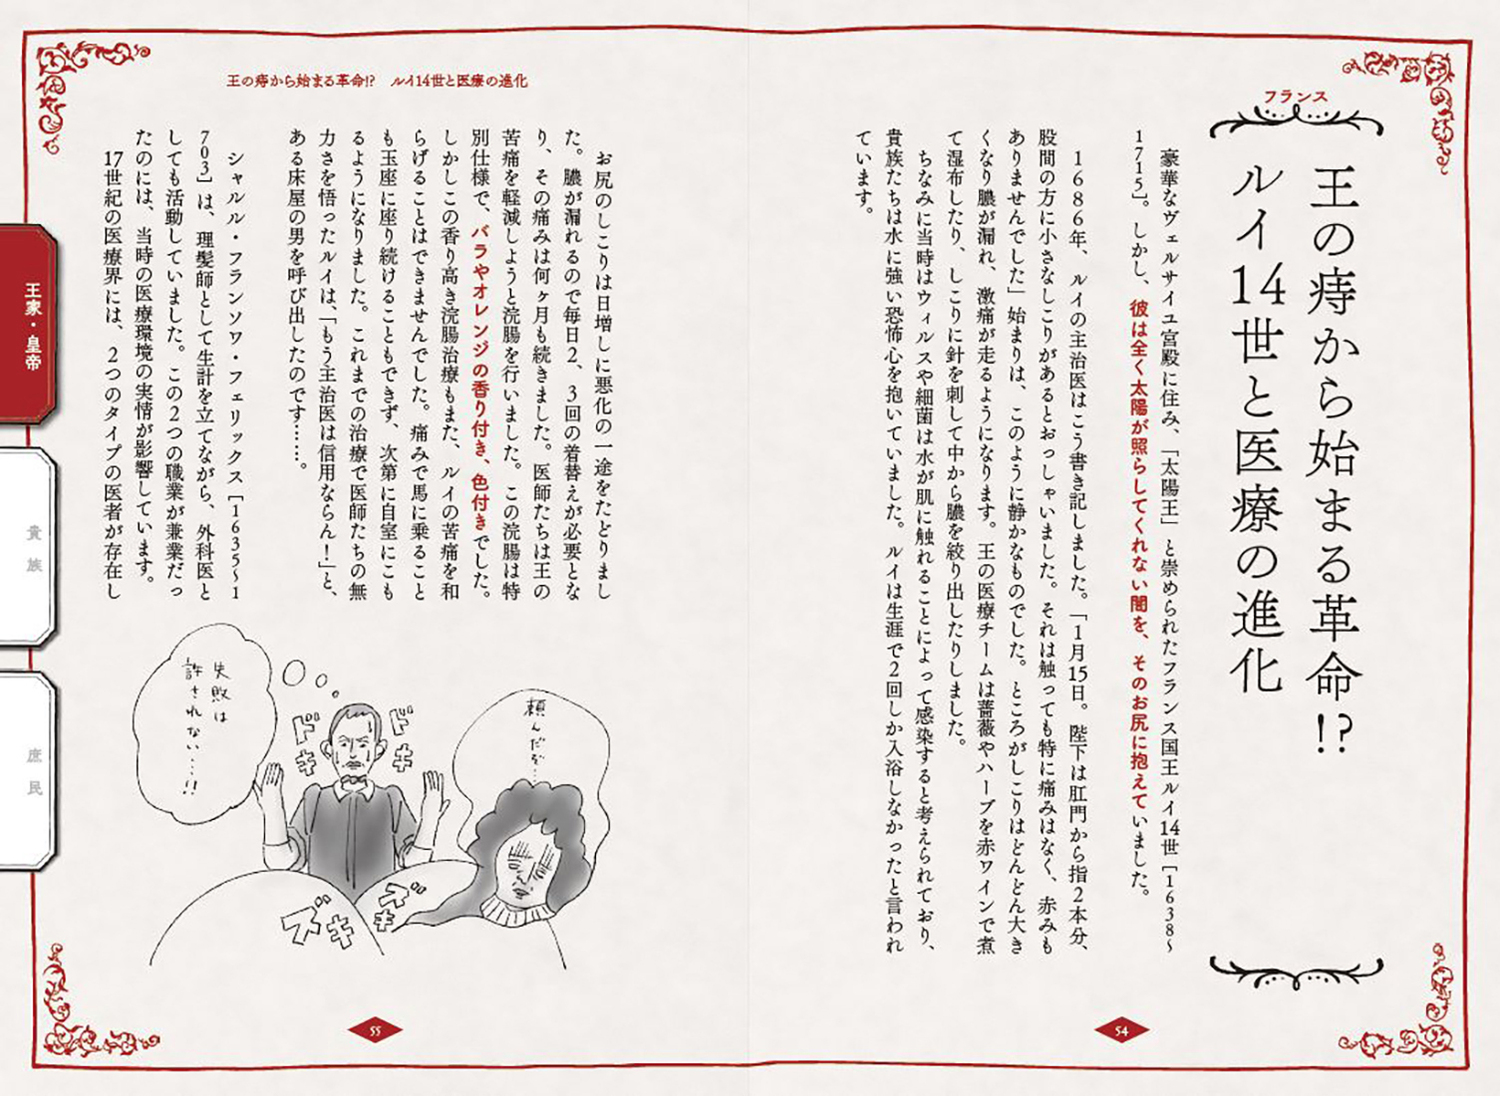 フランス
王の痔から始まる革命!?
ルイ14世と医療の進化
豪華なヴェルサイユ宮殿に住み、「太陽王」と崇められたフランス国王ルイ14世［1638〜
1715］。しかし、彼は全く太陽が照らしてくれない闇を、そのお尻に抱えていました。
1686年、ルイの主治医はこう書き記しました。「1月15日。陛下は肛門から指2本分、
股間の方に小さなしこりがあるとおっしゃいました。それは触っても特に痛みはなく、赤みも
ありませんでした」始まりは、このように静かなものでした。ところがしこりはどんどん大き
くなり膿が漏れ、激痛が走るようになります。王の医療チームは薔薇やハーブを赤ワインで煮
て湿布したり、しこりに針を刺して中から膿を絞り出したりしました。
ちなみに当時はウィルスや細菌は水が肌に触れることによって感染すると考えられており、
貴族たちは水に強い恐怖心を抱いていました。ルイは生涯で2回しか入浴しなかったと言われ
ています。
54
王の痔から始まる革命!? ルイ14世と医療の進化
お尻のしこりは日増しに悪化の一途をたどりまし
た。膿が漏れるので毎日2、3回の着替えが必要とな
り、その痛みは何ヶ月も続きました。医師たちは王の
苦痛を軽減しようと浣腸を行いました。この浣腸は特
別仕様で、バラやオレンジの香り付き、色付きでした。
しかしこの香り高き浣腸治療もまた、ルイの苦痛を和
らげることはできませんでした。痛みで馬に乗ること
も玉座に座り続けることもできず、次第に自室にこも
るようになりました。これまでの治療で医師たちの無
力さを悟ったルイは、「もう主治医は信用ならん!」と、
ある床屋の男を呼び出したのです……。
シャルル・フランソワ・フェリックス［1635〜1
703］は、理髪師として生計を立てながら、外科医と
しても活動していました。この2つの職業が兼業だっ
たのには、当時の医療環境の実情が影響しています。
17世紀の医療界には、2つのタイプの医者が存在し
頼んだな…
ドキ
ドキ
失敗は
許されない…!!
ズキ
ズキ
55
王家・皇帝
貴族
庶民